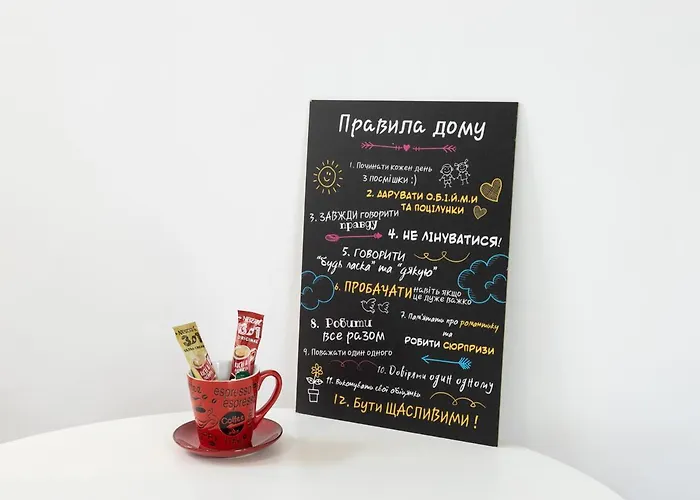 Правила дому
1. Починати кожен день
з посмішки :)
2. ДАРУВАТИ О.Б.І.Й.М.И
ТА ПОЦІЛУНКИ
3. ЗАВЖДИ ГОВОРИТИ
правду
4. НЕ ЛІНУВАТИСЯ!
5. ГОВОРИТИ
"будь ласка" та "дякую"
6. ПРОБАЧАТИ навіть якщо
це дуже важко
7. Пам'ятати про романтику
та
РОБИТИ СЮРПРИЗИ
8. Робити
все разом
9. Поважати один одного
10. Довіряти один одному
11. Виконувати свої обіцянки
12. Бути ЩАСЛИВИМИ!
NESCAFÉ
3в1
NESCAFÉ
3в1
espresso
espresso
Coffee